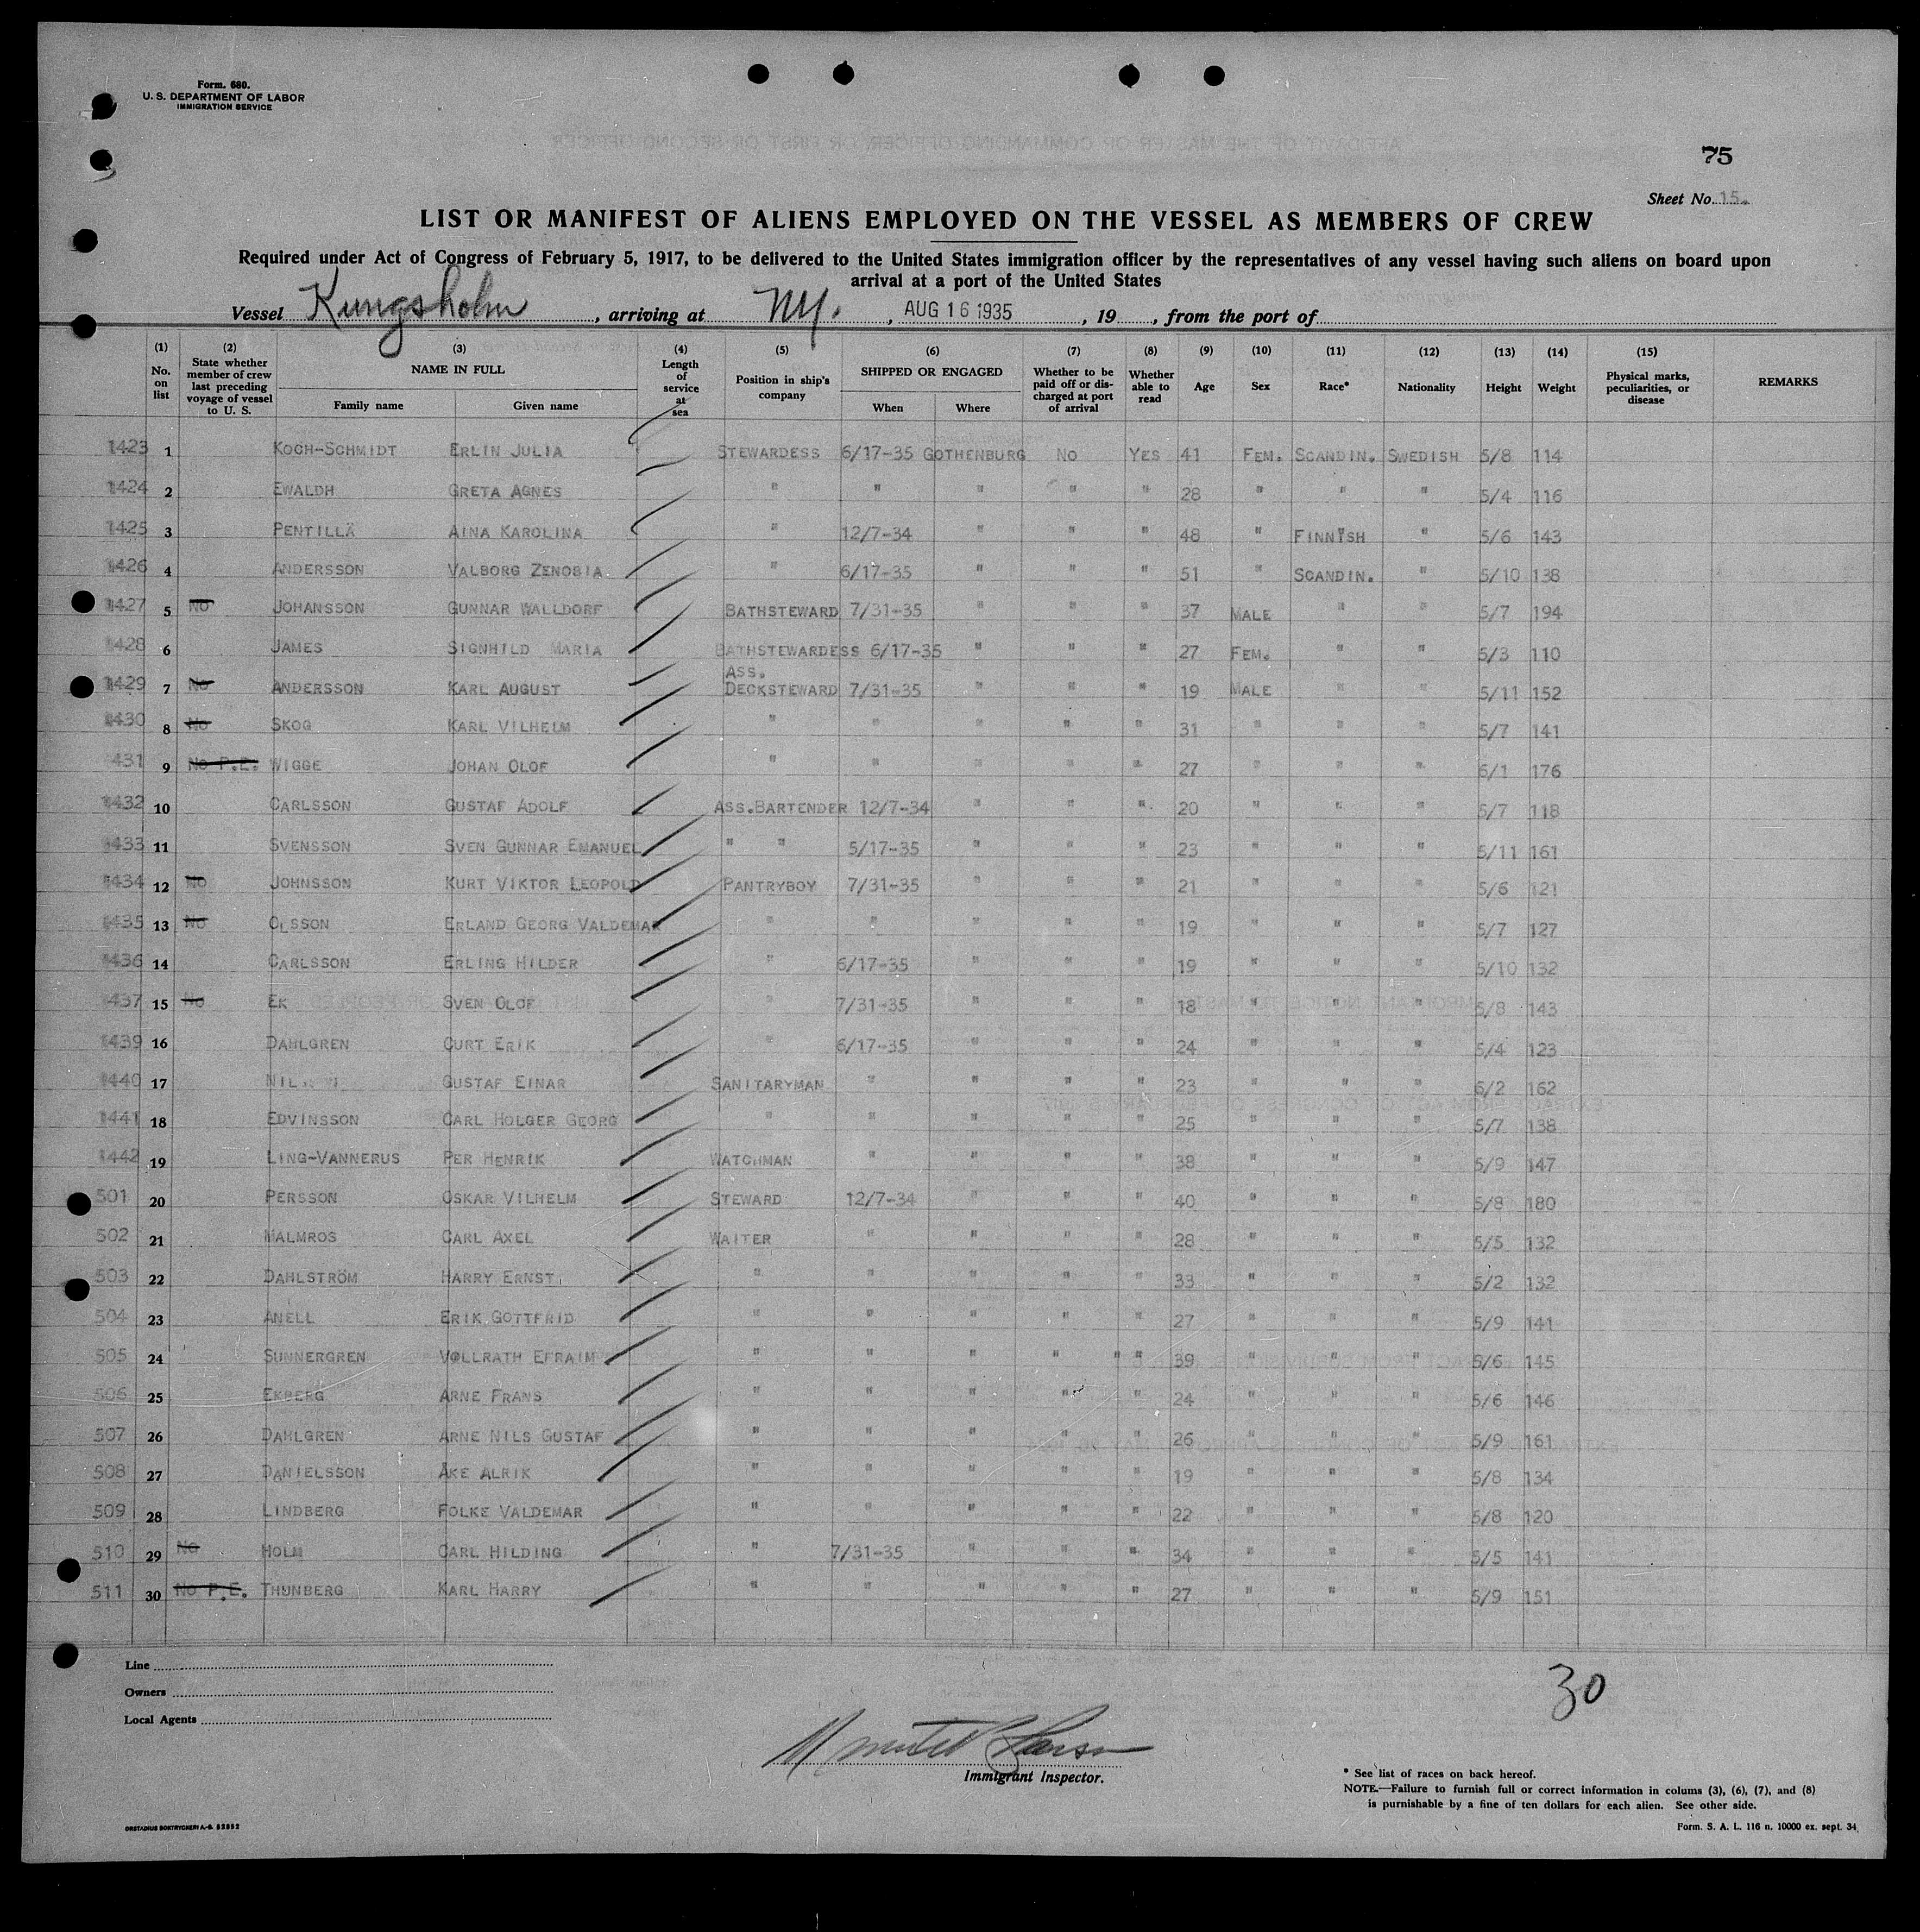 Form. 680.
U. S. DEPARTMENT OF LABOR
IMMIGRATION SERVICE
75
Sheet No. 15.
LIST OR MANIFEST OF ALIENS EMPLOYED ON THE VESSEL AS MEMBERS OF CREW
Required under Act of Congress of February 5, 1917, to be delivered to the United States immigration officer by the representatives of any vessel having such aliens on board upon
arrival at a port of the United States
Vessel Kungsholm, arriving at NY., AUG 16 1935, 19, from the port of
(1) No. on list (2) State whether member of crew last preceding voyage of vessel to U. S. (3) NAME IN FULL Family name Given name (4) Length of service at sea (5) Position in ship's company (6) SHIPPED OR ENGAGED When Where (7) Whether to be paid off or discharged at port of arrival (8) Whether able to read (9) Age (10) Sex (11) Race* (12) Nationality (13) Height (14) Weight (15) Physical marks, peculiarities, or disease REMARKS
1423 1 KOCH-SCHMIDT ERLIN JULIA STEWARDESS 6/17-35 GOTHENBURG NO YES 41 FEM. SCANDIN. SWEDISH 5/8 114
1424 2 EWALDH GRETA AGNES " " " " " 28 " " " 5/4 116
1425 3 PENTILLÄ AINA KAROLINA " 12/7-34 " " " 48 " FINNISH " 5/6 143
1426 4 ANDERSSON VALBORG ZENOBIA " 6/17-35 " " " 51 " SCANDIN. " 5/10 138
1427 5 NO JOHANSSON GUNNAR WALLDORF BATHSTEWARD 7/31-35 " " " 37 MALE " " 5/7 194
1428 6 JAMES SIGNHILD MARIA BATHSTEWARDESS 6/17-35 " " " 27 FEM. " " 5/3 110
1429 7 NO ANDERSSON KARL AUGUST ASS. DECKSTEWARD 7/31-35 " " " 19 MALE " " 5/11 152
1430 8 NO SKOG KARL VILHELM " " " " " 31 " " " 5/7 141
1431 9 NO P.E. WIGGE JOHAN OLOF " " " " " 27 " " " 6/1 176
1432 10 CARLSSON GUSTAF ADOLF ASS.BARTENDER 12/7-34 " " " 20 " " " 5/7 118
1433 11 SVENSSON SVEN GUNNAR EMANUEL " " 5/17-35 " " " 23 " " " 5/11 161
1434 12 NO JOHNSSON KURT VIKTOR LEOPOLD PANTRYBOY 7/31-35 " " " 21 " " " 5/6 121
1435 13 NO OLSSON ERLAND GEORG VALDEMAR " " " " " 19 " " " 5/7 127
1436 14 CARLSSON ERLING HILDER " 6/17-35 " " " 19 " " " 5/10 132
1437 15 NO EK SVEN OLOF " 7/31-35 " " " 18 " " " 5/8 143
1439 16 DAHLGREN CURT ERIK " 6/17-35 " " " 24 " " " 5/4 123
1440 17 GUSTAF EINAR SANITARYMAN " " " " 23 " " " 6/2 162
1441 18 EDVINSSON CARL HOLGER GEORG " " " " " 25 " " " 5/7 138
1442 19 LING-VANNERUS PER HENRIK WATCHMAN " " " " 38 " " " 5/9 147
501 20 PERSSON OSKAR VILHELM STEWARD 12/7-34 " " " 40 " " " 5/8 180
502 21 MALMROS CARL AXEL WAITER " " " " 28 " " " 5/5 132
503 22 DAHLSTRÖM HARRY ERNST " " " " " 33 " " " 5/2 132
504 23 ANELL ERIK GOTTFRID " " " " " 27 " " " 5/9 141
505 24 SUNNERGREN VOLLRATH EFRAIM " " " " " " 39 " " " 5/6 145
506 25 EKBERG ARNE FRANS " " " " " 24 " " " 5/6 146
507 26 DAHLGREN ARNE NILS GUSTAF " " " " " 26 " " " 5/9 161
508 27 DANIELSSON ÅKE ALRIK " " " " " 19 " " " 5/8 134
509 28 LINDBERG FOLKE VALDEMAR " " " " " 22 " " " 5/8 120
510 29 NO HOLM CARL HILDING " 7/31-35 " " " 34 " " " 5/5 141
511 30 NO P.E. THUNBERG KARL HARRY " " " " " 27 " " " 5/9 151
Line
Owners
Local Agents
30
Immigrant Inspector.
* See list of races on back hereof.
NOTE.—Failure to furnish full or correct information in colums (3), (6), (7), and (8)
is purnishable by a fine of ten dollars for each alien. See other side.
ORSTADIUS BOKTRYCKERI A.-B. 52552
Form. S. A. L. 116 n. 10000 ex. sept. 34